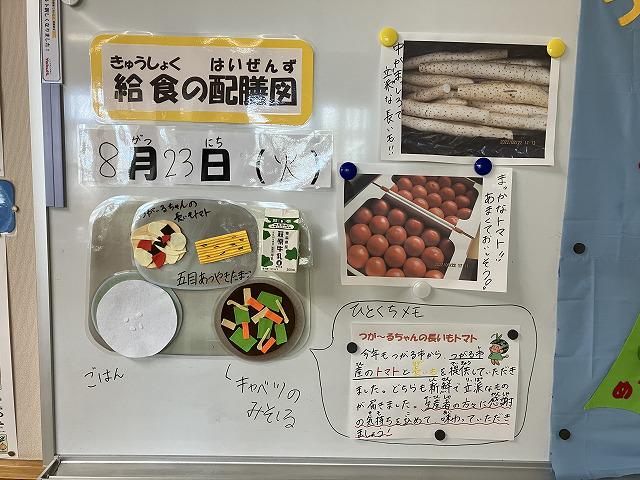 きゅうしょく　はいぜんず
給食の配膳図
がつ　にち
8月23日(火)
つが～るちゃんの
長いもトマト
五目あつやきたまご
牛乳
ごはん
キャベツの
みそしる
中がまっしろで
立派な長いも!!
まっかなトマト!!
あまくておいしそう♪
ひとくちメモ
つが～るちゃんの長いもトマト
今年もつがる市から、つがる市
産のトマトと長いもを提供していただき
ました。どちらも新鮮で立派なもの
が届きました。生産者の方々に感謝
の気持ちを込めて、味わっていただき
ましょう!